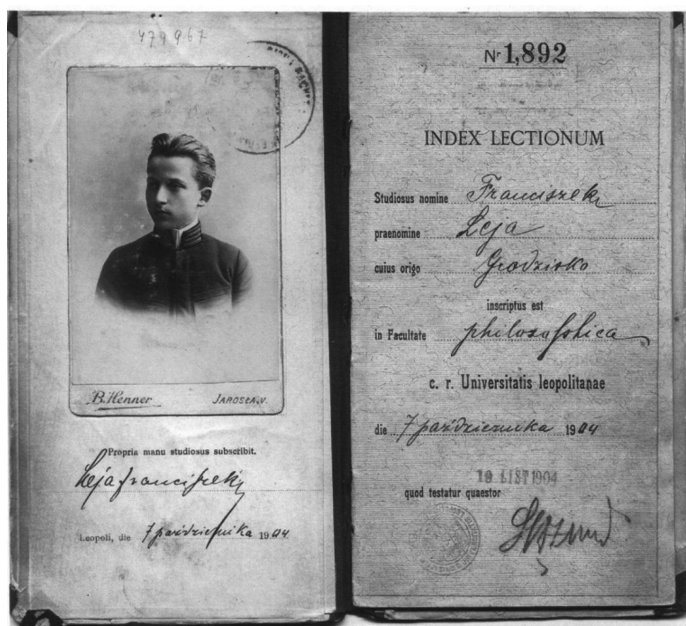 479967
B. Henner JAROSŁAW.
Propria manu studiosus subscribit.
Leja Franciszek
Leopoli, die 7 października 1904
Nr 1,892
INDEX LECTIONUM
Studiosus nomine Franciszek
praenomine Leja
cuius origo Grodzisko
inscriptus est
in Facultate philozofolica
c. r. Universitatis leopolitanae
die 7 października 1904
19 LIST 1904
quod testatur quaestor